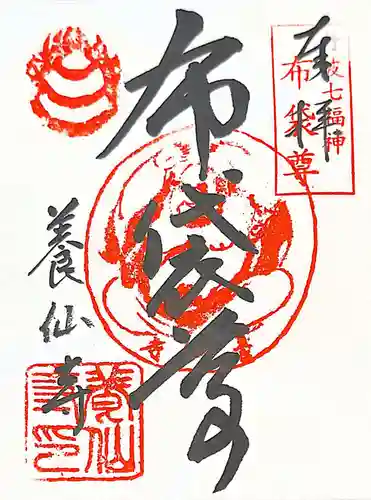 奉拝
七福神
布袋尊
布袋尊
養仙寺
養仙寺印